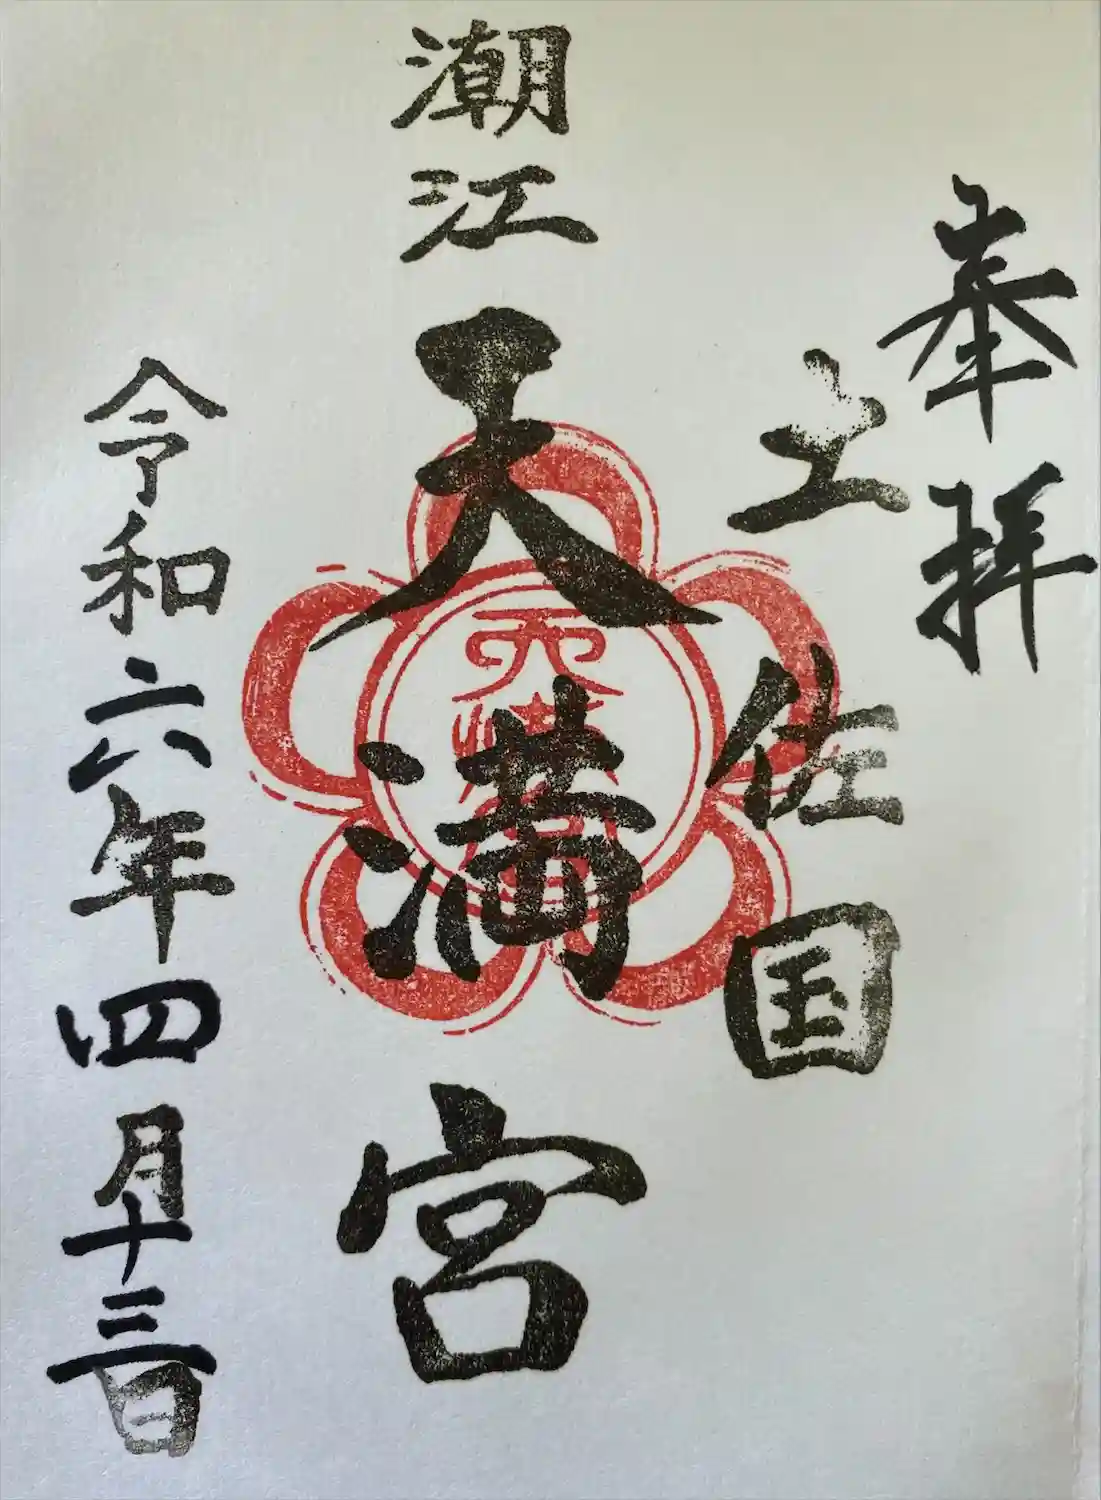 奉拝
土佐国
潮江天満宮
天満宮
令和六年四月十三日